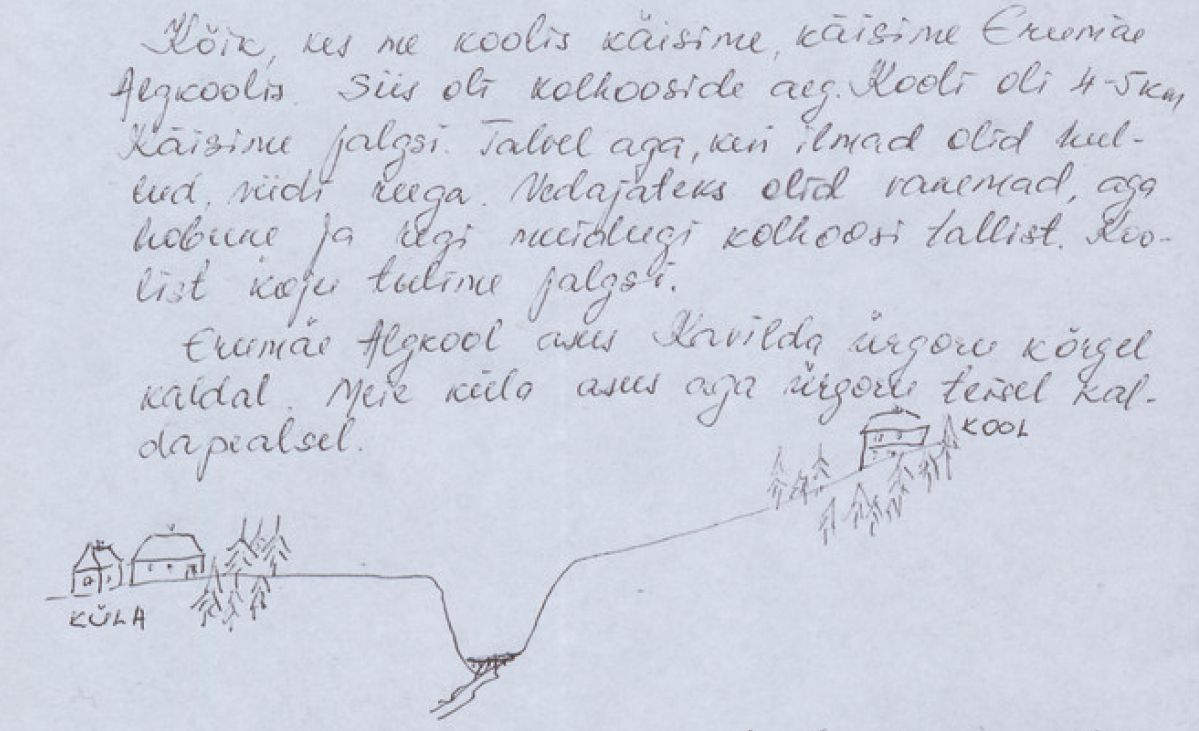 Kõik, kes me koolis käisime, käisime Erumäe
Algkoolis. Siis oli kolhooside aeg. Kooli oli 4-5 km
Käisime jalgsi. Talvel aga, kui ilmad olid hul-
lud, viidi reega. Vedajateks olid vanemad, aga
hobune ja regi muidugi kolhoosi tallist. Koo-
list koju tulime jalgsi.
Erumäe Algkool asus Kavilda ürgoru kõrgel
kaldal. Meie küla asus aga ürgoru teisel kal-
dapealsel.
KOOL
KÜLA